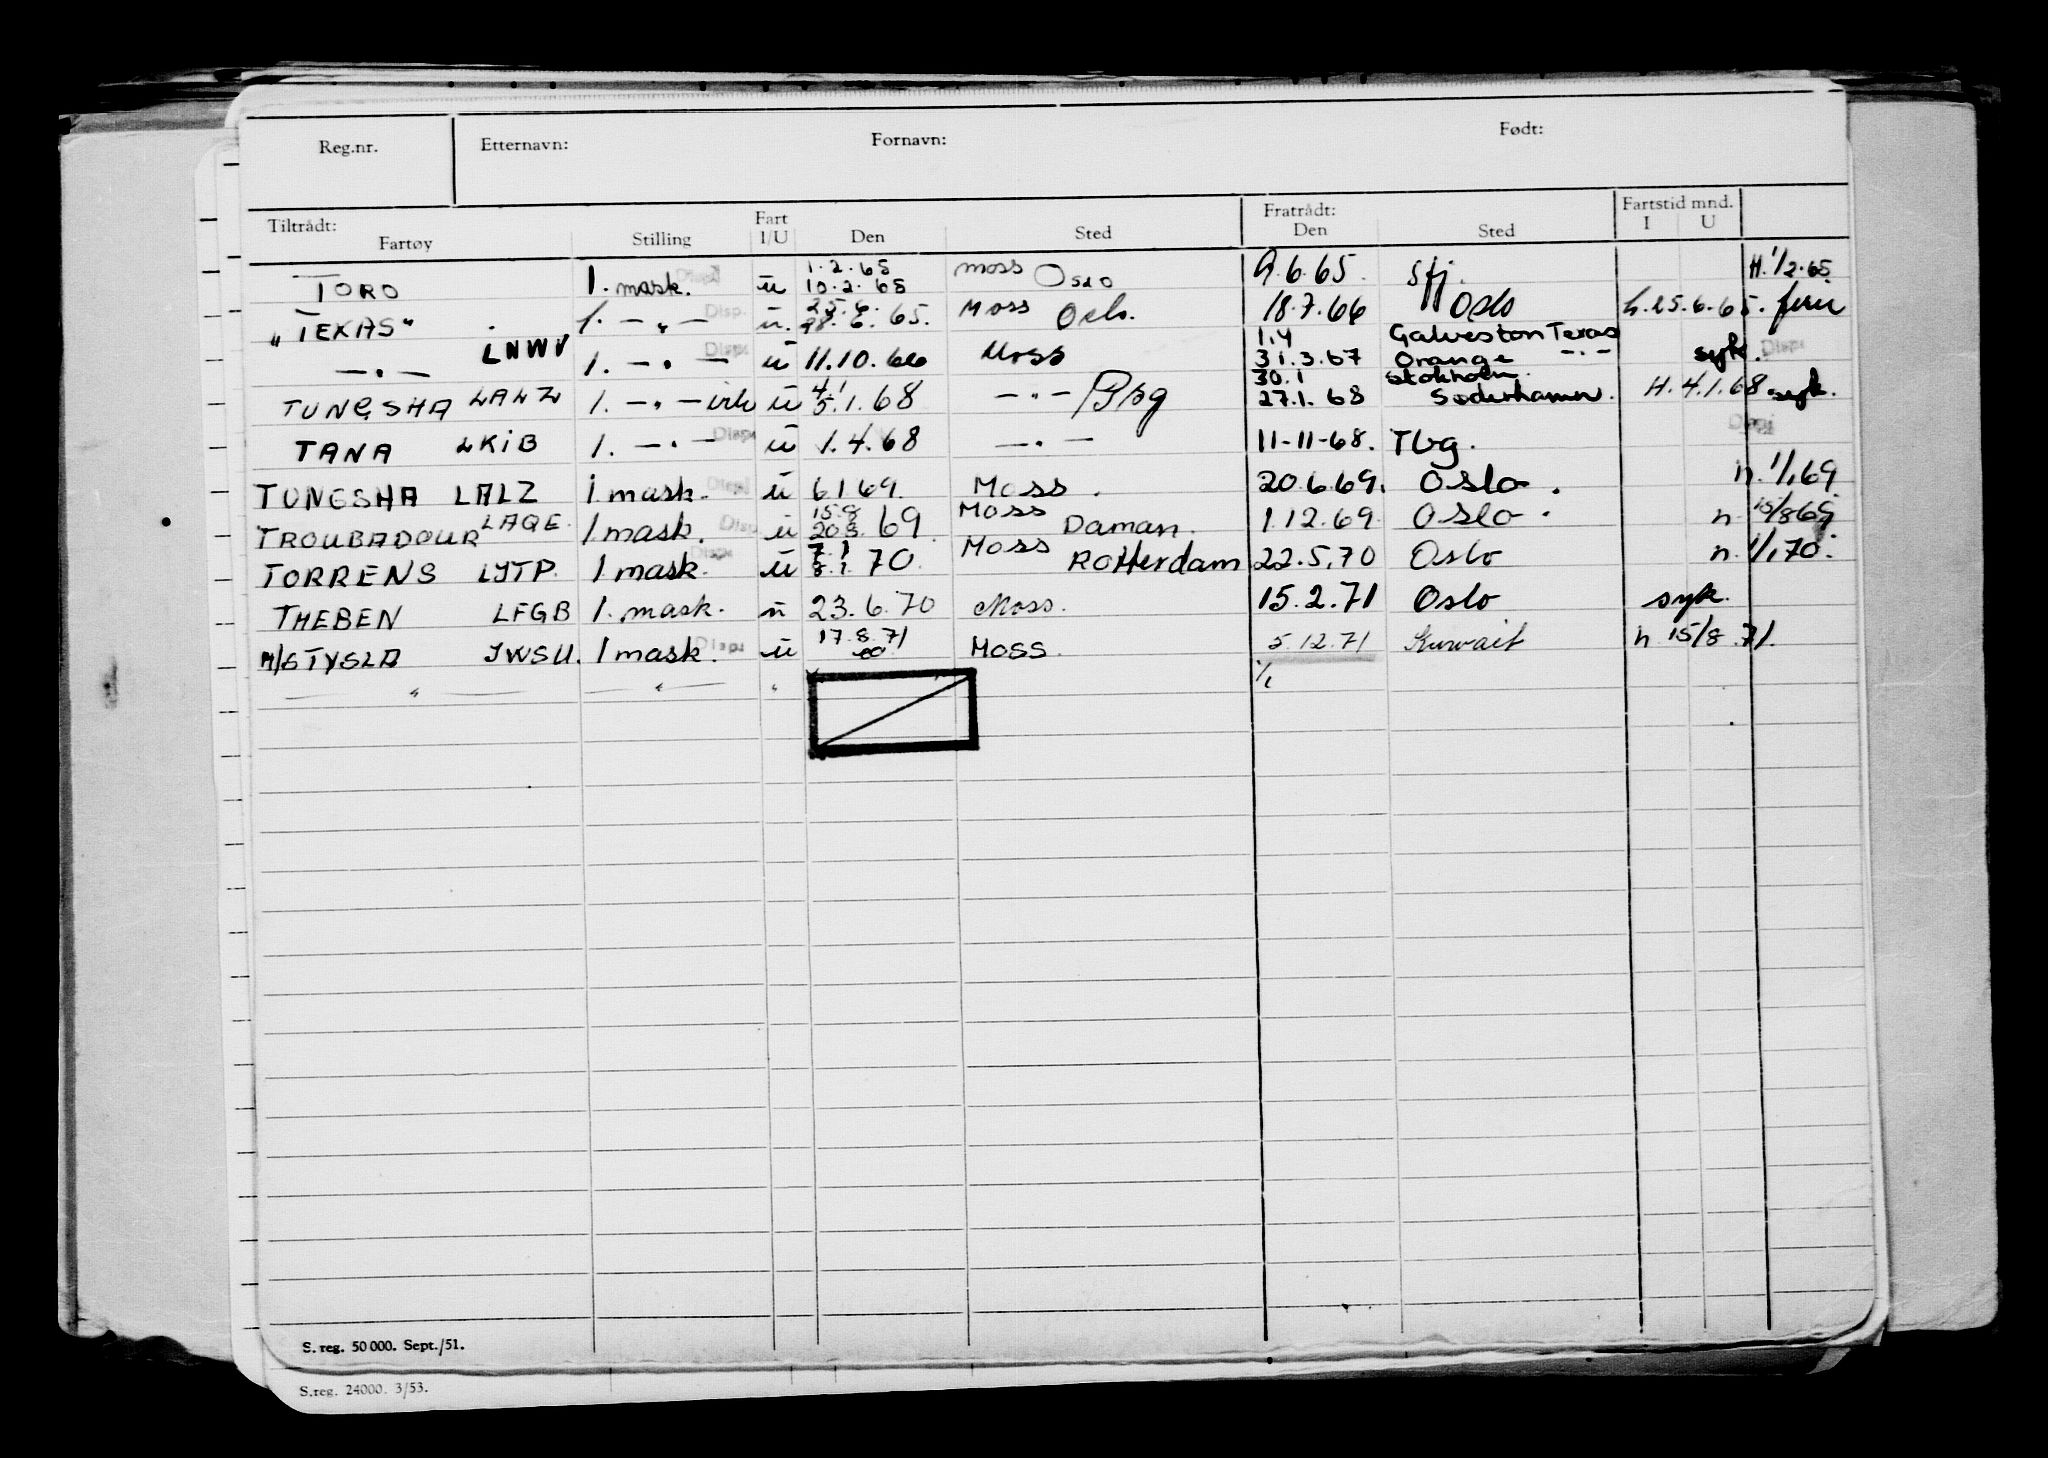 Reg.nr. Etternavn: Fornavn: Født:
Tiltrådt: Fart Fratrådt: Fartstid mnd.
Fartøy Stilling I/U Den Sted Den Sted I U
TORO 1. mask. Disp ü 1.2.65 10.2.65 Moss Oslo 9.6.65. Sfj. H. 1/2.65
"TEXAS" 1. — " — Disp. ü. 25.6. 28.6.65. Moss Oslo. 18.7.66 Oslo h. 25.6.65. ferie
— " — LNWV 1. — " — Disp ü 11.10.66 Moss 1.4 31.3.67 Galveston Texas Orange — " — syk. Disp
TUNGSHA LALZ 1. — " — vik ü 4/1 5.1.68 — " — Bbg 30.1 27.1.68 Stokholm. Søderhamn. H. 4.1.68 syk.
TANA LKIB 1. — " — Disp ü 1.4.68 — " — 11-11-68. Tbg. Disp
TUNGSHA LALZ 1 mask. Disp ü 6.1.69. Moss. 20.6.69. Oslo. n. 1/1.69
TROUBADOUR LAQE. 1 mask. Disp ü 15.8 20.8.69 Moss Daman. 1.12.69. Oslo. n 15/8 69
TORRENS LJTP. 1 mask. Disp ü 7.1 8.1.70. Moss Rotterdam 22.5.70 Oslo n. 1/1.70.
THEBEN LFGB 1. mask. ü 23.6.70 Moss. 15.2.71 Oslo syk.
M/S TYSLA JWSU. 1 mask. Disp ü 17.8.71 Moss. 5.12.71 Kuwait h 15/8.71.
— " — — " — " 1/1
S. reg. 50 000. Sept./51.
S.reg. 24000. 3/53.